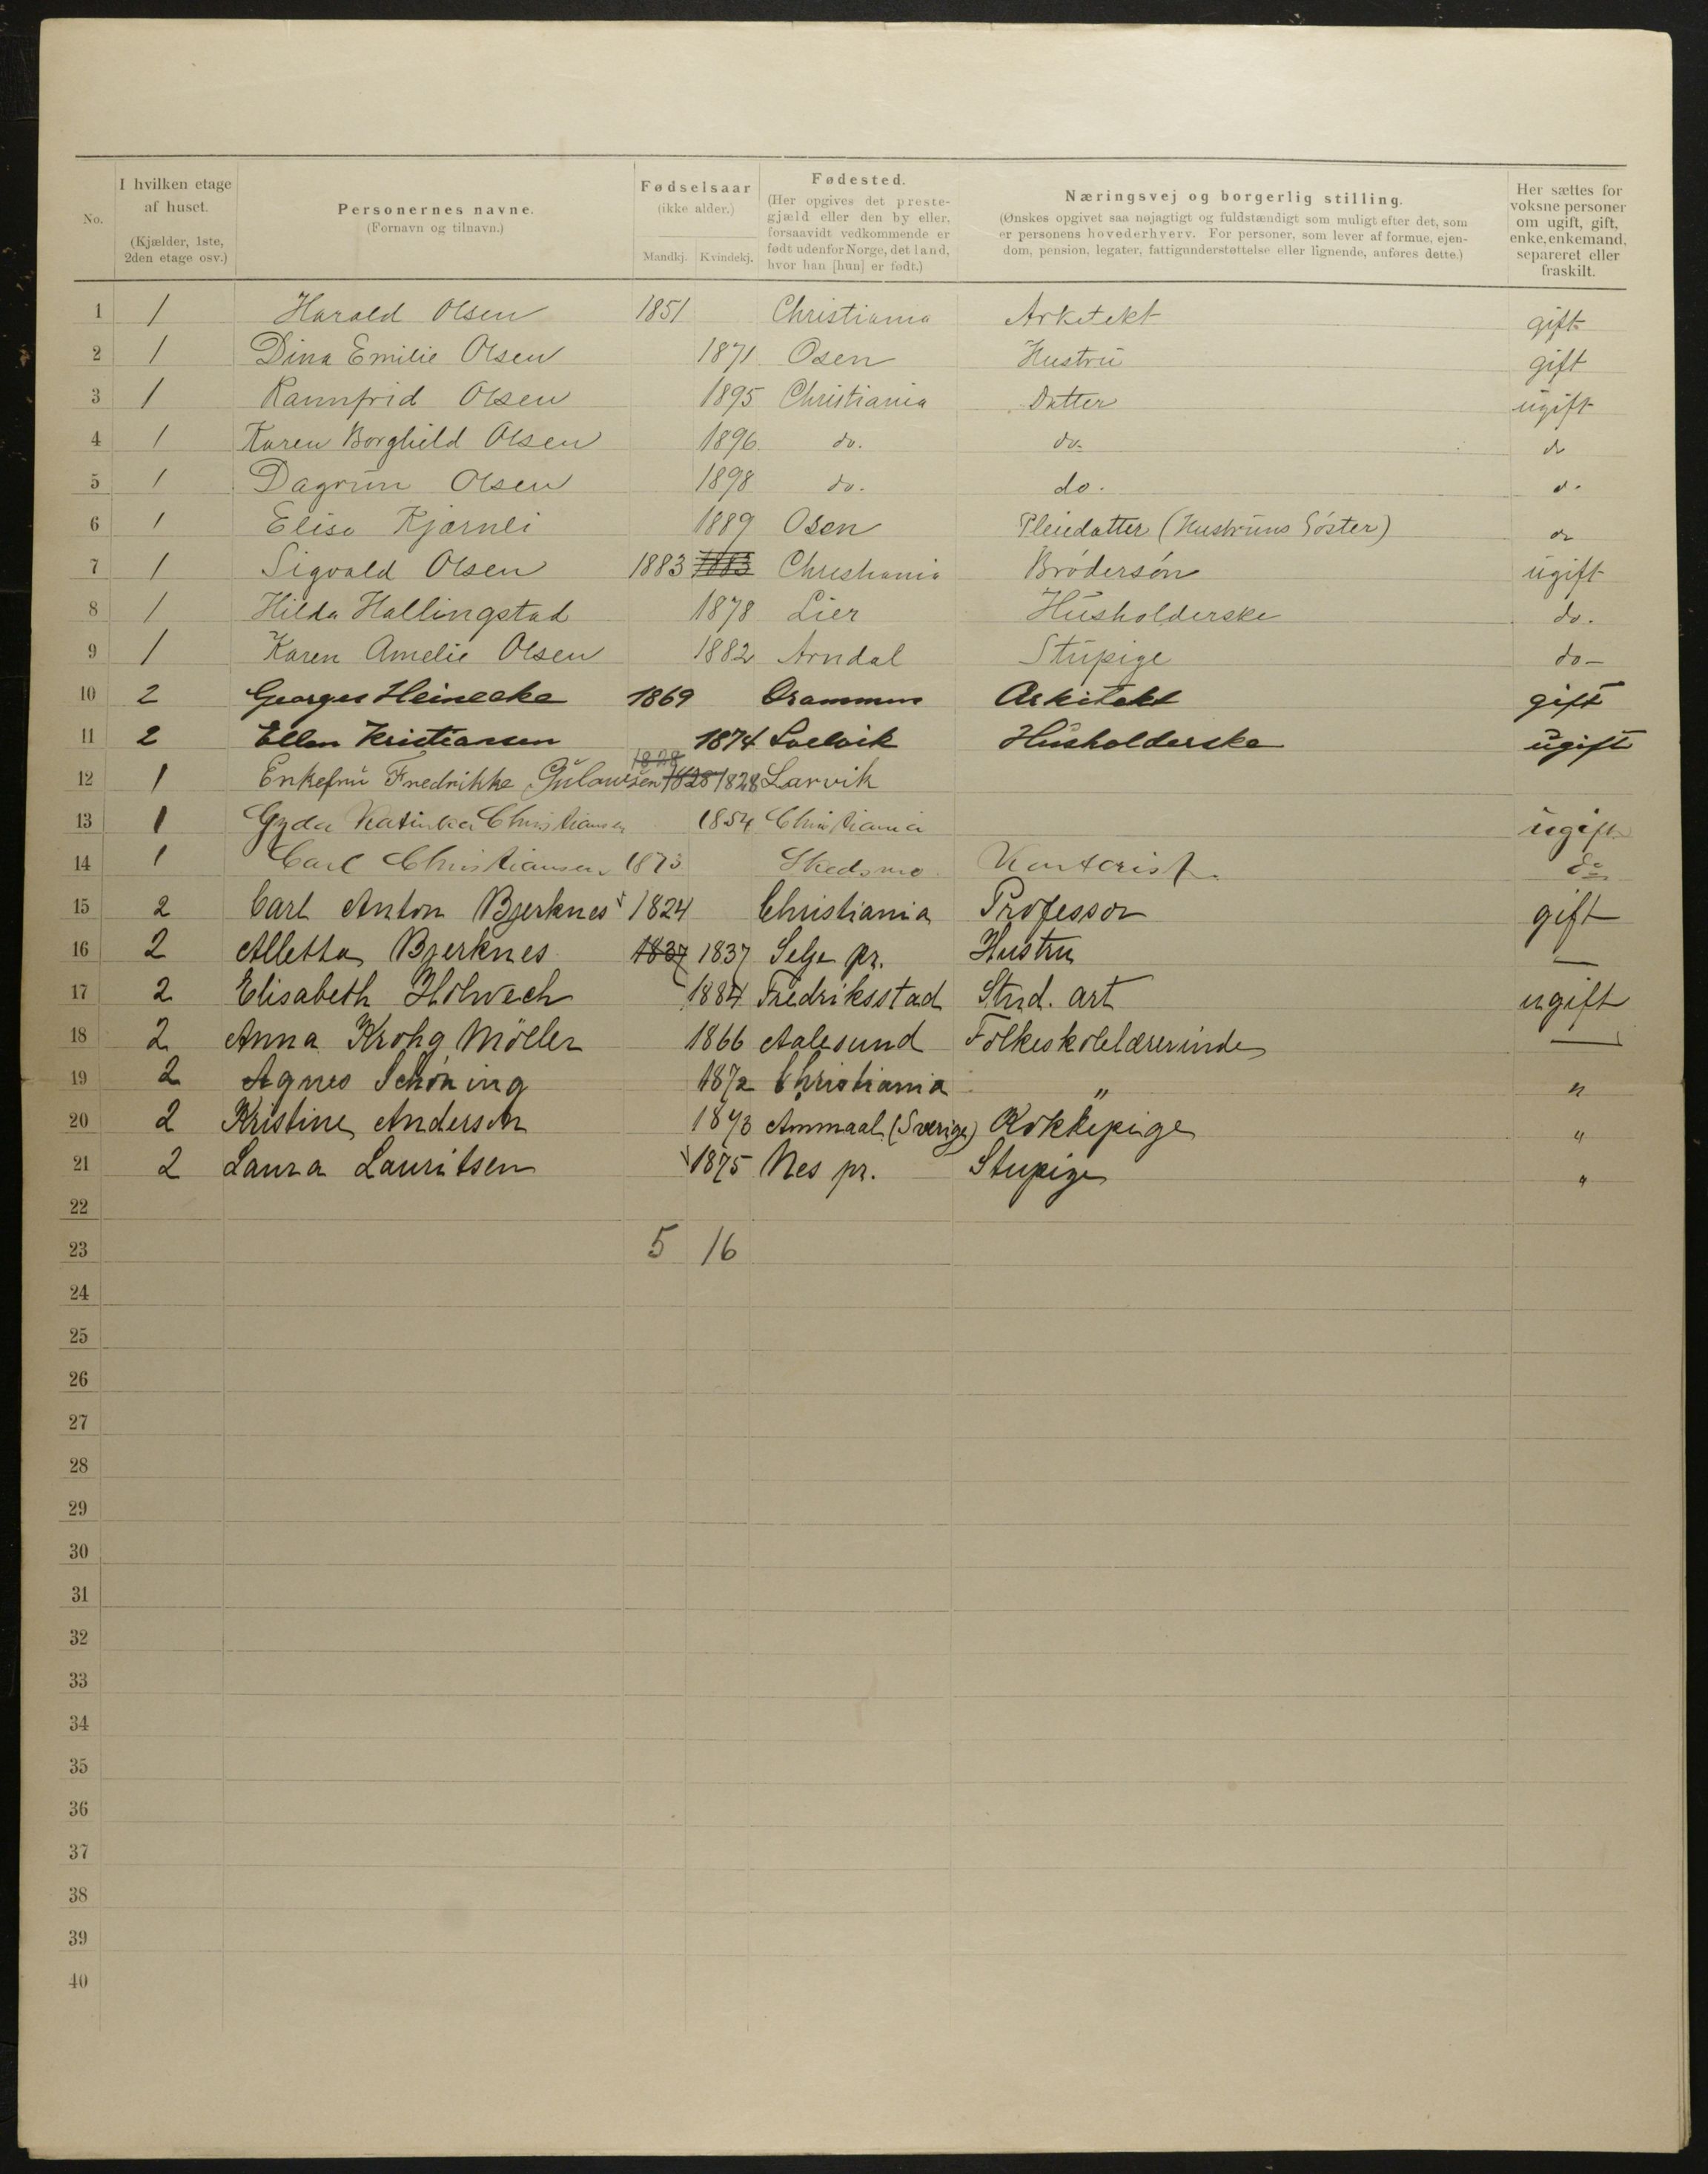 No.
I hvilken etage af huset.
(Kjælder, 1ste, 2den etage osv.)
Personernes navne.
(Fornavn og tilnavn.)
Fødselsaar
(ikke alder.)
Mandkj. Kvindekj.
Fødested.
(Her opgives det prestegjæld eller den by eller, forsaavidt vedkommende er født udenfor Norge, det land, hvor han [hun] er født.)
Næringsvej og borgerlig stilling.
(Ønskes opgivet saa nøjagtigt og fuldstændigt som muligt efter det, som er personens hovederhverv. For personer, som lever af formue, ejendom, pension, legater, fattigunderstøttelse eller lignende, anføres dette.)
Her sættes for voksne personer om ugift, gift, enke, enkemand, separeret eller fraskilt.
1 1 Harald Olsen 1851 Christiania Arkitekt gift
2 1 Dina Emilie Olsen 1871 Osen Hustru gift
3 1 Rannfrid Olsen 1895 Christiania Datter ugift
4 1 Karen Borghild Olsen 1896 do. do. do
5 1 Dagrun Olsen 1898 do. do. d.
6 1 Elise Kjærnli 1889 Osen Pleiedatter (Hustruns Söster) do
7 1 Sigvald Olsen 1883 1883 Christiania Brödersön ugift
8 1 Hilda Hallingstad 1878 Lier Husholderske do.
9 1 Karen Amelie Olsen 1882 Arndal Stupige do
10 2 Georges Heinecke 1869 Drammen Arkitekt gift
11 2 Ellen Kristiansen 1874 Svelvik Husholderske ugift
12 1 Enkefru Fredrikke 1828 1828 1828 Larvik
13 1 Gyda Katinka Christiansen 1854 Christiania ugift
14 1 Carl Christiansen 1873 Skedsmo Kontorist. do
15 2 Carl Anton Bjerknes 1824 Christiania Professor gift
16 2 Alletta Bjerknes 1837 1837 Selje pr. Hustru —
17 2 Elisabeth Holwech 1884 Fredriksstad Stud. art ugift
18 2 Anna Krohg Möller 1866 Aalesund Folkeskolelærerinde —
19 2 Agnes Schöning 1872 Christiania " "
20 2 Kristine Anderson 1873 Ammaal (Sverige) Kokkepige "
21 2 Laura Lauritsen 1875 Nes pr. Stupige "
22
23 5 16
24
25
26
27
28
29
30
31
32
33
34
35
36
37
38
39
40